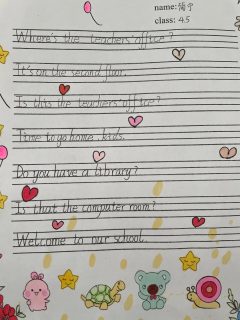 name:简宁
class: 4.5
Where's the teachers' office?
It's on the second floor.
Is this the teachers' office?
Time to go home, kids.
Do you have a library?
Is that the computer room?
Welcome to our school.